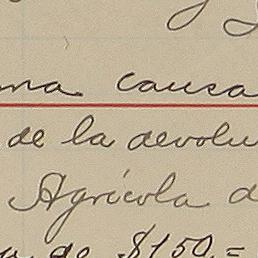 na causa
de la devolu
Agrícola d
de $150,=